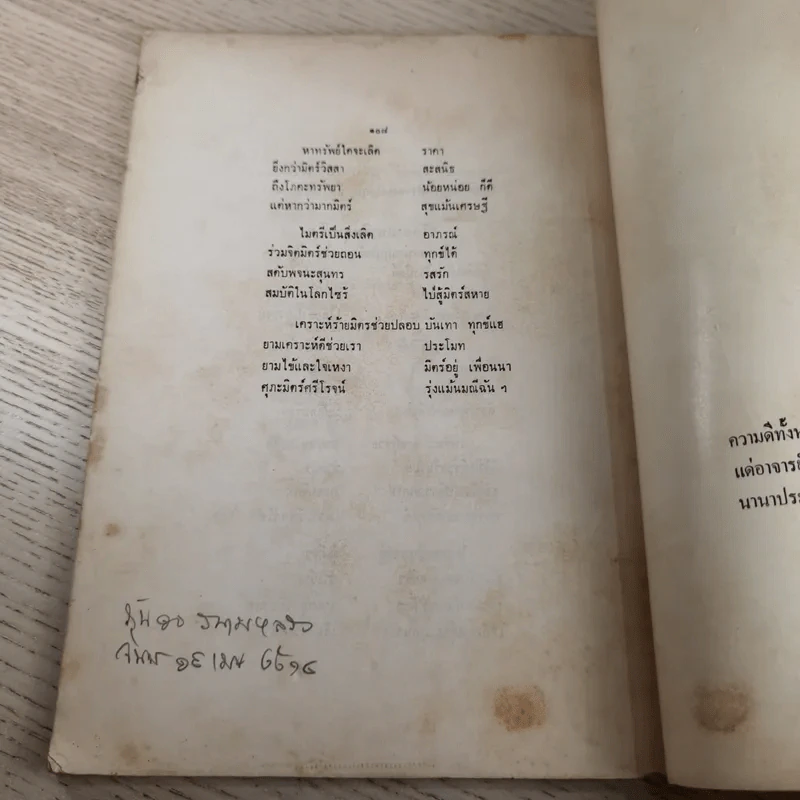 ๑๐๗
หาทรัพย์ใดจะเลิด ราคา
ยิ่งกว่ามิตร์วิสสา สะสนิธ
ถึงโภคะทรัพยา น้อยหน่อย ก็ดี
แต่หากว่ามากมิตร์ สุขแม้นเศรษฐี
ไมตรีเป็นสิ่งเลิด อาภรณ์
ร่วมจิตมิตร์ช่วยถอน ทุกข์ได้
สดับพจนะสุนทร รสรัก
สมบัติในโลกไซร้ ไป่สู้มิตร์สหาย
เคราะห์ร้ายมิตรช่วยปลอบ บันเทา ทุกข์แฮ
ยามเคราะห์ดีช่วยเรา ประโมท
ยามไข้และใจเหงา มิตร์อยู่ เพื่อนนา
ศุภะมิตร์ศรีโรจน์ รุ่งแม้นมณีฉัน ฯ
ความดีทั้งห
แด่อาจารย์
นานาประ